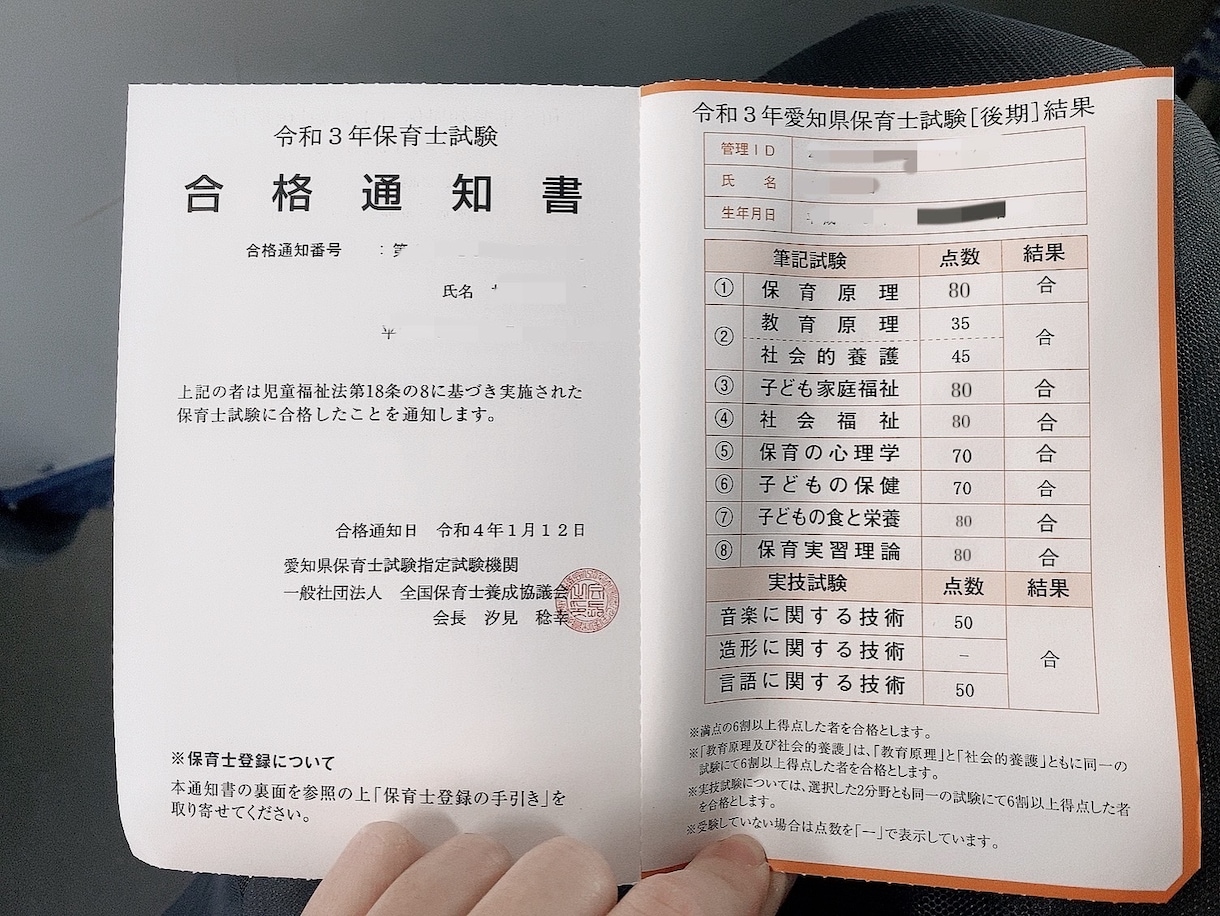 令和３年保育士試験
合格通知書
合格通知番号 ：第
氏名
平
上記の者は児童福祉法第18条の8に基づき実施された
保育士試験に合格したことを通知します。
合格通知日 令和４年１月１２日
愛知県保育士試験指定試験機関
一般社団法人 全国保育士養成協議会
会長 汐見 稔幸
※保育士登録について
本通知書の裏面を参照の上「保育士登録の手引き」を
取り寄せてください。
令和３年愛知県保育士試験[後期]結果
管理ＩＤ
氏 名
生年月日
筆記試験 点数 結果
① 保育原理 80 合
② 教育原理 35 合
社会的養護 45
③ 子ども家庭福祉 80 合
④ 社会福祉 80 合
⑤ 保育の心理学 70 合
⑥ 子どもの保健 70 合
⑦ 子どもの食と栄養 80 合
⑧ 保育実習理論 80 合
実技試験 点数 結果
音楽に関する技術 50 合
造形に関する技術 －
言語に関する技術 50
※満点の6割以上得点した者を合格とします。
※「教育原理及び社会的養護」は、「教育原理」と「社会的養護」ともに同一の
試験にて6割以上得点した者を合格とします。
※実技試験については、選択した2分野とも同一の試験にて6割以上得点した者
を合格とします。
※受験していない場合は点数を「－」で表示しています。